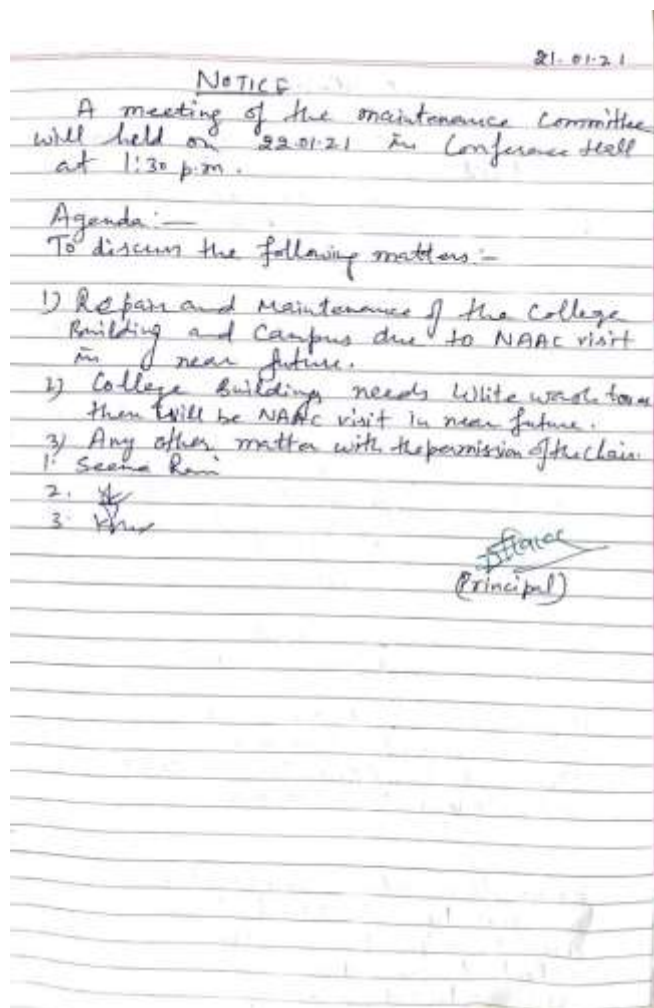 21.01.21
NOTICE
A meeting of the maintenance Committee
will held on 22.01.21 in Conference Hall
at 1:30 p.m.
Agenda:—
To discuss the following matters:—
1) Repair and Maintenance of the College
Building and Campus due to NAAC visit
in near future.
2) College Building needs White wash
then will be NAAC visit in near future.
3) Any other matter with the permission of the Chair.
1. Seema Rani
2.
3.
(Principal)